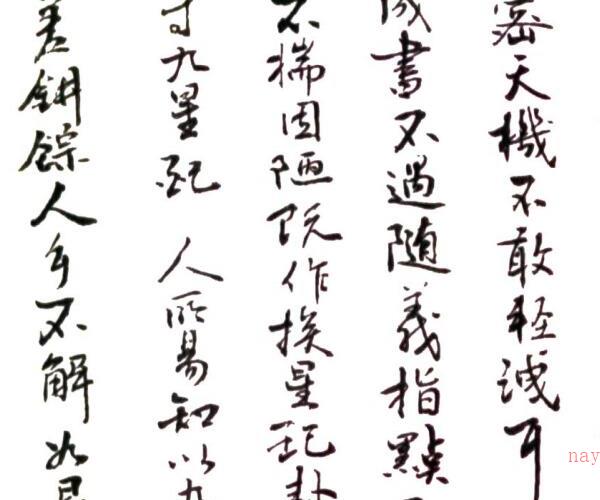 密天機不敢輕洩耳
成書不過隨義指點
不揣固陋既作挨星配卦
九星配 人所易知以九
人多不解如
nay